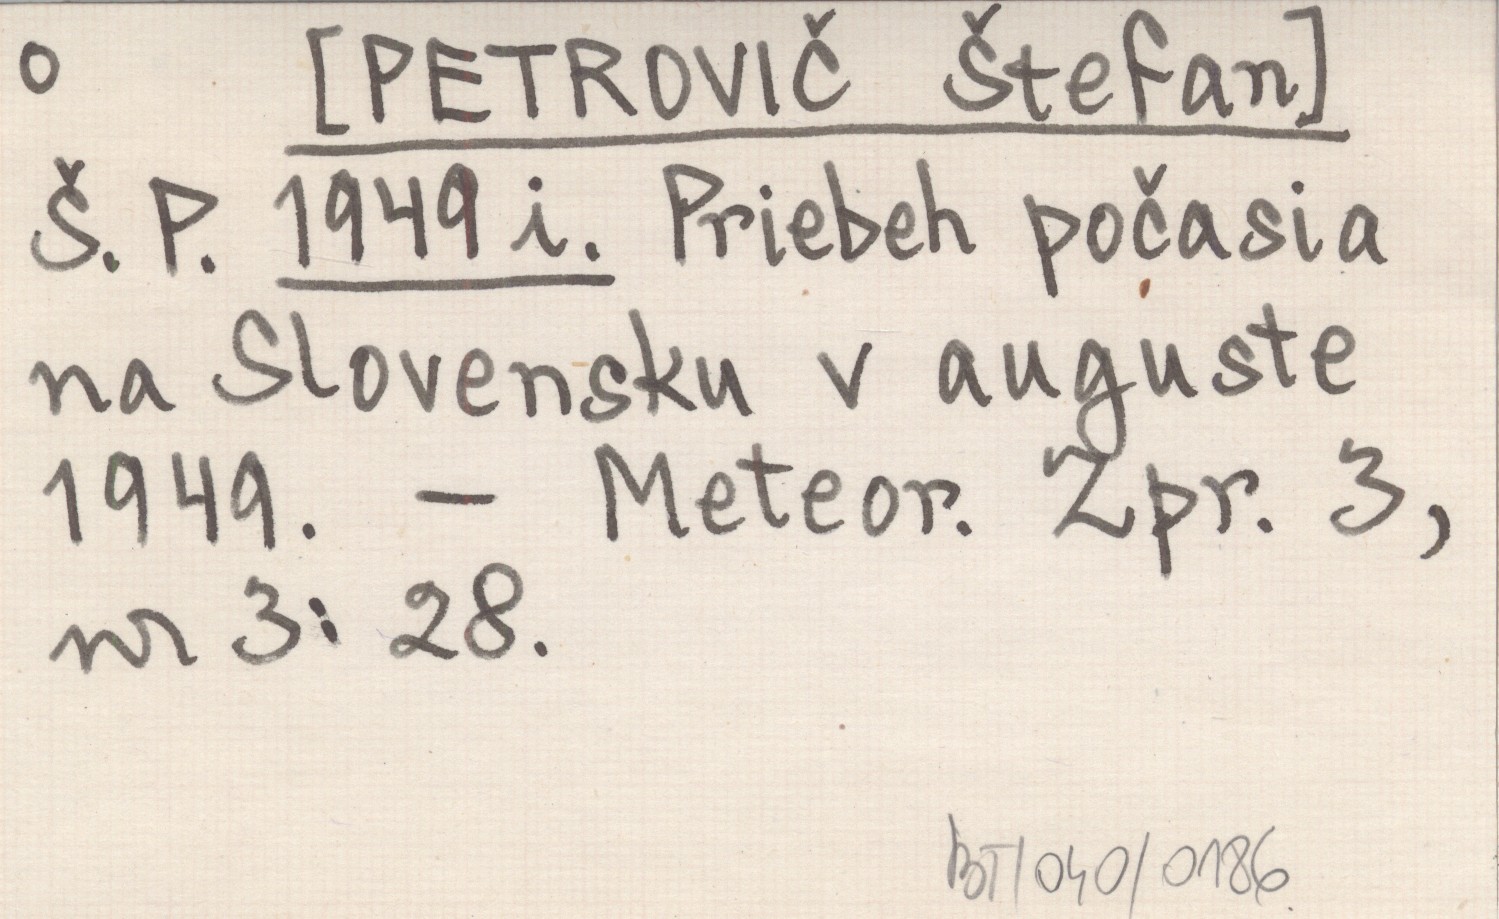 o [PETROVIČ Štefan]
Š. P. 1949 i. Priebeh počasia
na Slovensku v auguste
1949. – Meteor. Zpr. 3,
nr 3: 28.
BT/040/0186